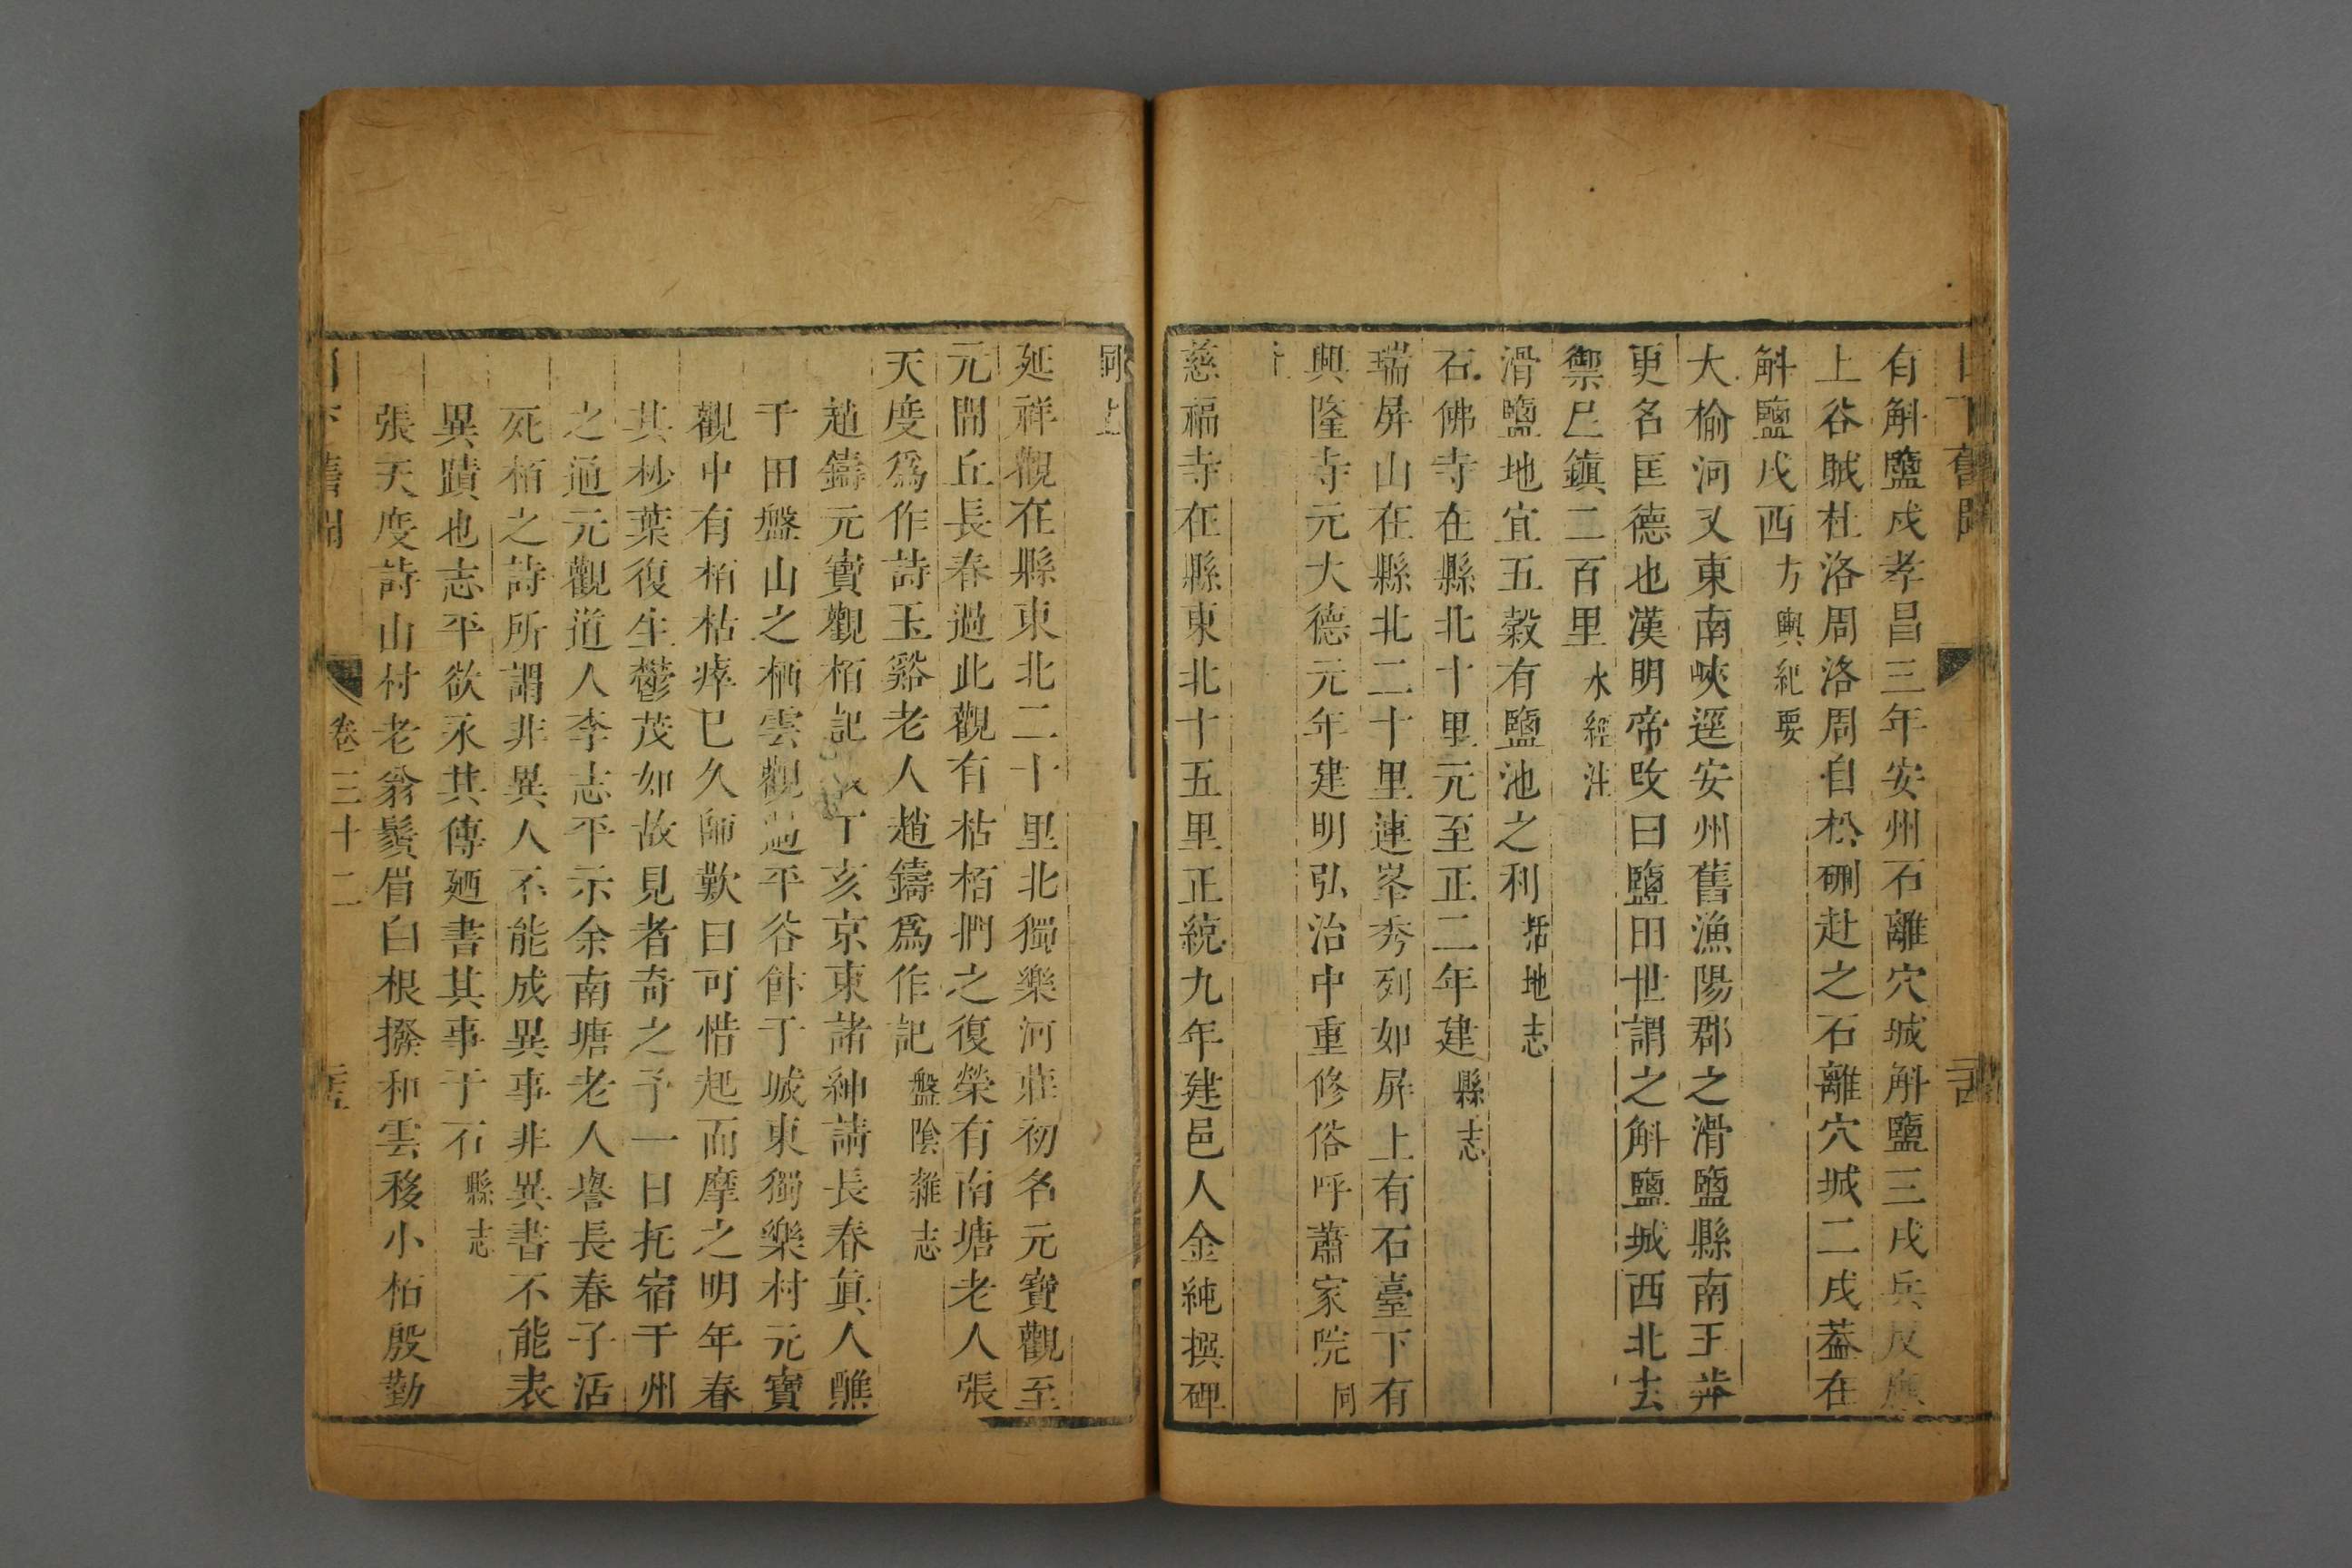 有斛鹽戍孝昌三年安州石離穴城斛鹽三戍兵反應
上谷賊杜洛周洛周自松硎赴之石離穴城二戍葢在
斛鹽戍西方輿紀要
大榆河又東南峽逕安州舊漁陽郡之滑鹽縣南王莽
更名匡德也漢明帝改曰鹽田世謂之斛鹽城西北去
禦㠯鎮二百里水經注
滑鹽地宜五穀有鹽池之利括地志
石佛寺在縣北十里元至正二年建縣志
瑞屏山在縣北二十里連峯秀列如屏上有石臺下有
興隆寺元大德元年建明弘治中重修俗呼蕭家院同
上
慈福寺在縣東北十五里正統九年建邑人金純撰碑
同上
延祥觀在縣東北二十里北獨樂河莊初名元寶觀至
元間丘長春過此觀有枯栢捫之復榮有南塘老人張
天度爲作詩玉谿老人趙鑄爲作記盤陰雜志
趙鑄元寶觀栢記丁亥京東諸紳請長春眞人醮
于田盤山之栖雲觀過平谷館于城東獨樂村元寶
觀中有栢枯瘁巳久師歎曰可惜起而摩之明年春
其杪葉復生鬱茂如故見者奇之予一日托宿于州
之通元觀道人李志平示余南塘老人譽長春子活
死栢之詩所謂非異人不能成異事非異書不能表
異蹟也志平欲永其傳廼書其事于石縣志
張天度詩山村老翁鬚眉白根撥和雲移小栢殷勤
卷三十二